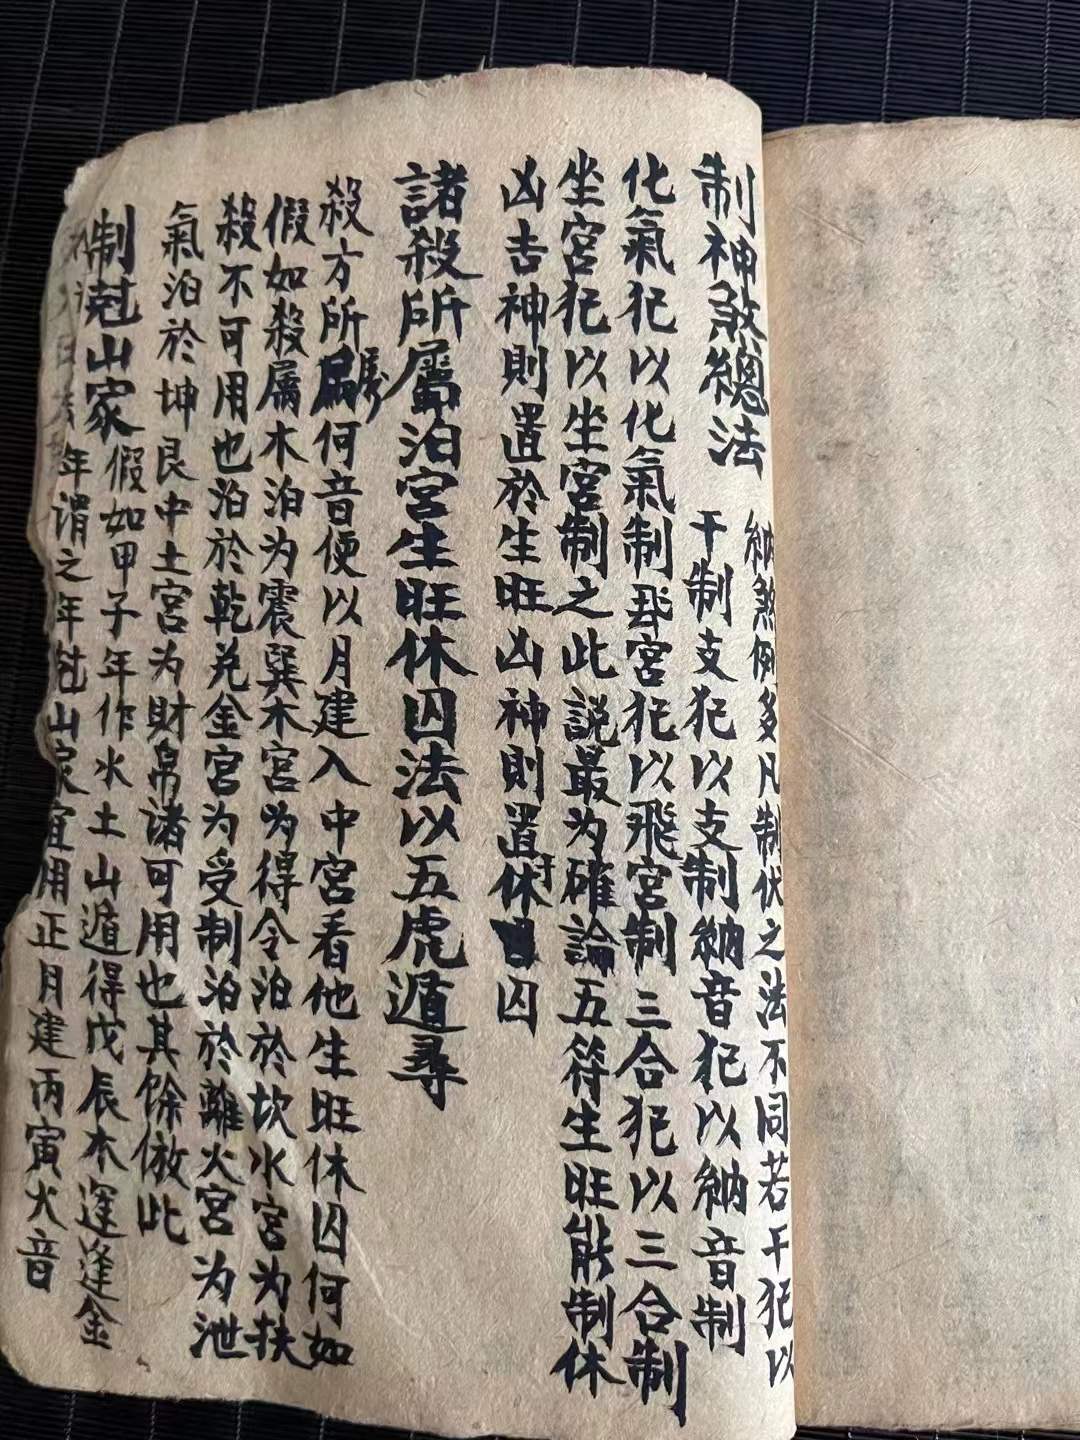 制神煞總法
納煞例多凡制伏之法不同若干犯以
干制支犯以支制納音犯以納音制
化氣犯以化氣制飛宮犯以飛宮制三合犯以三合制
坐宮犯以坐宮制之此説最为確論五符生旺能制休
凶吉神則置於生旺凶神則置休于囚
諸殺所屬泊宮生旺休囚法以五虎遁尋
殺方所屬何音便以月建入中宮看他生旺休囚何如
假如殺属木泊为震巽木宮为得令泊於坎水宮为扶
殺不可用也泊於乾兑金宮为受制泊於離火宮为泄
氣泊於坤艮中土宮为財帛诸可用也其餘倣此
制尅山家
假如甲子年作水土山遁得戊辰木運逢金
年谓之年尅山家宜用正月建丙寅火音